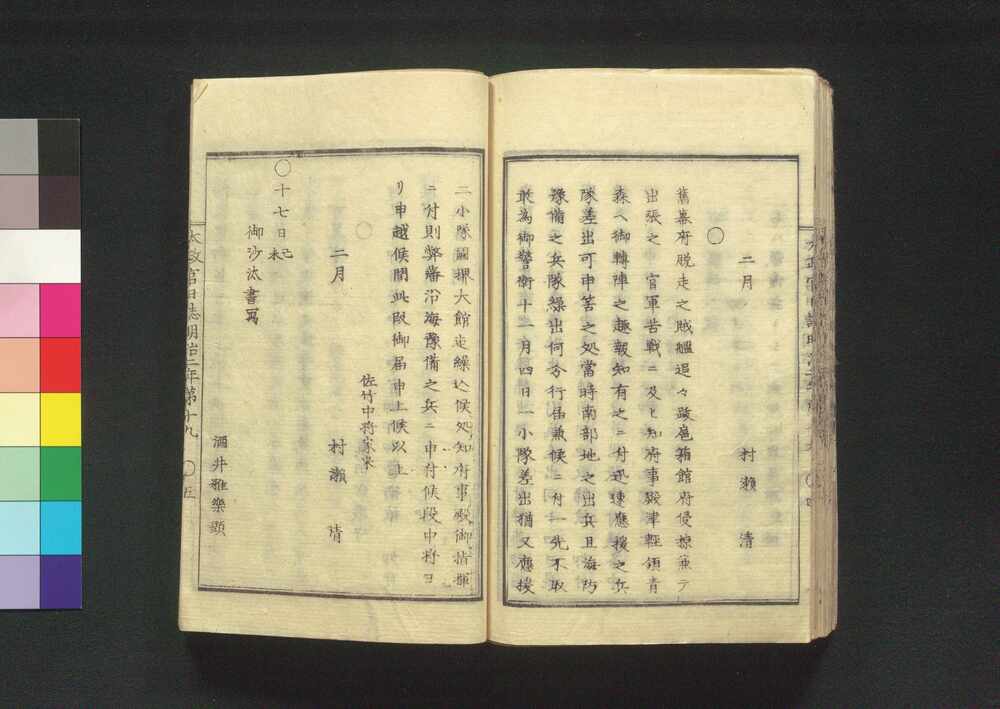 二月
村瀬清
〇
舊幕府脱走之賊艦追々跋扈箱館府侵掠並テ
出張之 官軍苦戦ニ及ヒ知府事殿津軽領青
森ヘ御轉陣之趣報知有之ニ付迅速應援之兵
隊差出可申筈之処當時南部地之出兵且海防
豫備之兵隊繰出何分行届兼候ニ付一先不取
敢為御警衛十一月四日一小隊差出猶又應援
二小隊 大館迄繰込候処知府事殿御指揮
ニ付則弊藩沿海豫備之兵ニ申付候段中将ヨ
リ申越候間此段御届申上候以上
佐竹中将家来
二月
村瀬清
〇十七日己未
御沙汰書写
酒井雅樂頭
太政官日誌明治二年第十九
〇五